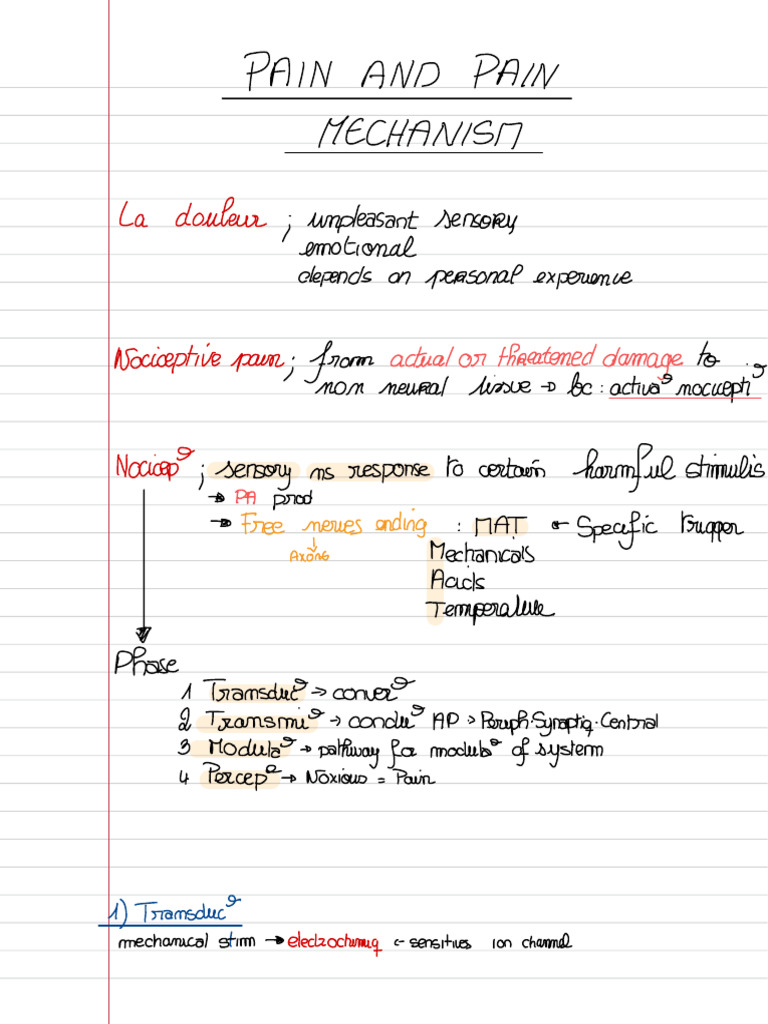 PAIN AND PAIN
MECHANISM
La douleur ; unpleasant sensory
emotional
depends on personal experience
Nociceptive pain ; from actual or threatened damage to
non neural tissue → bc : activaᶿ nociceptiᶿ
Nocicepᶿ ; sensory ns response to certain harmful stimulis
→ PA prod
→ Free nerves ending : MAT ← Specific trigger
Axons
Mechanicals
Acids
Temperature
Phase
1 Transductᶿ → converᶿ
2 Transmiᶿ → conduᶿ AP > Periph. Synaptiq. Central
3 Modulaᶿ → pathway for modulaᶿ of system
4 Percepᶿ → Noxious = Pain
1) Transducᶿ
mechanical stim → electrochimiq ← sensitives ion channel